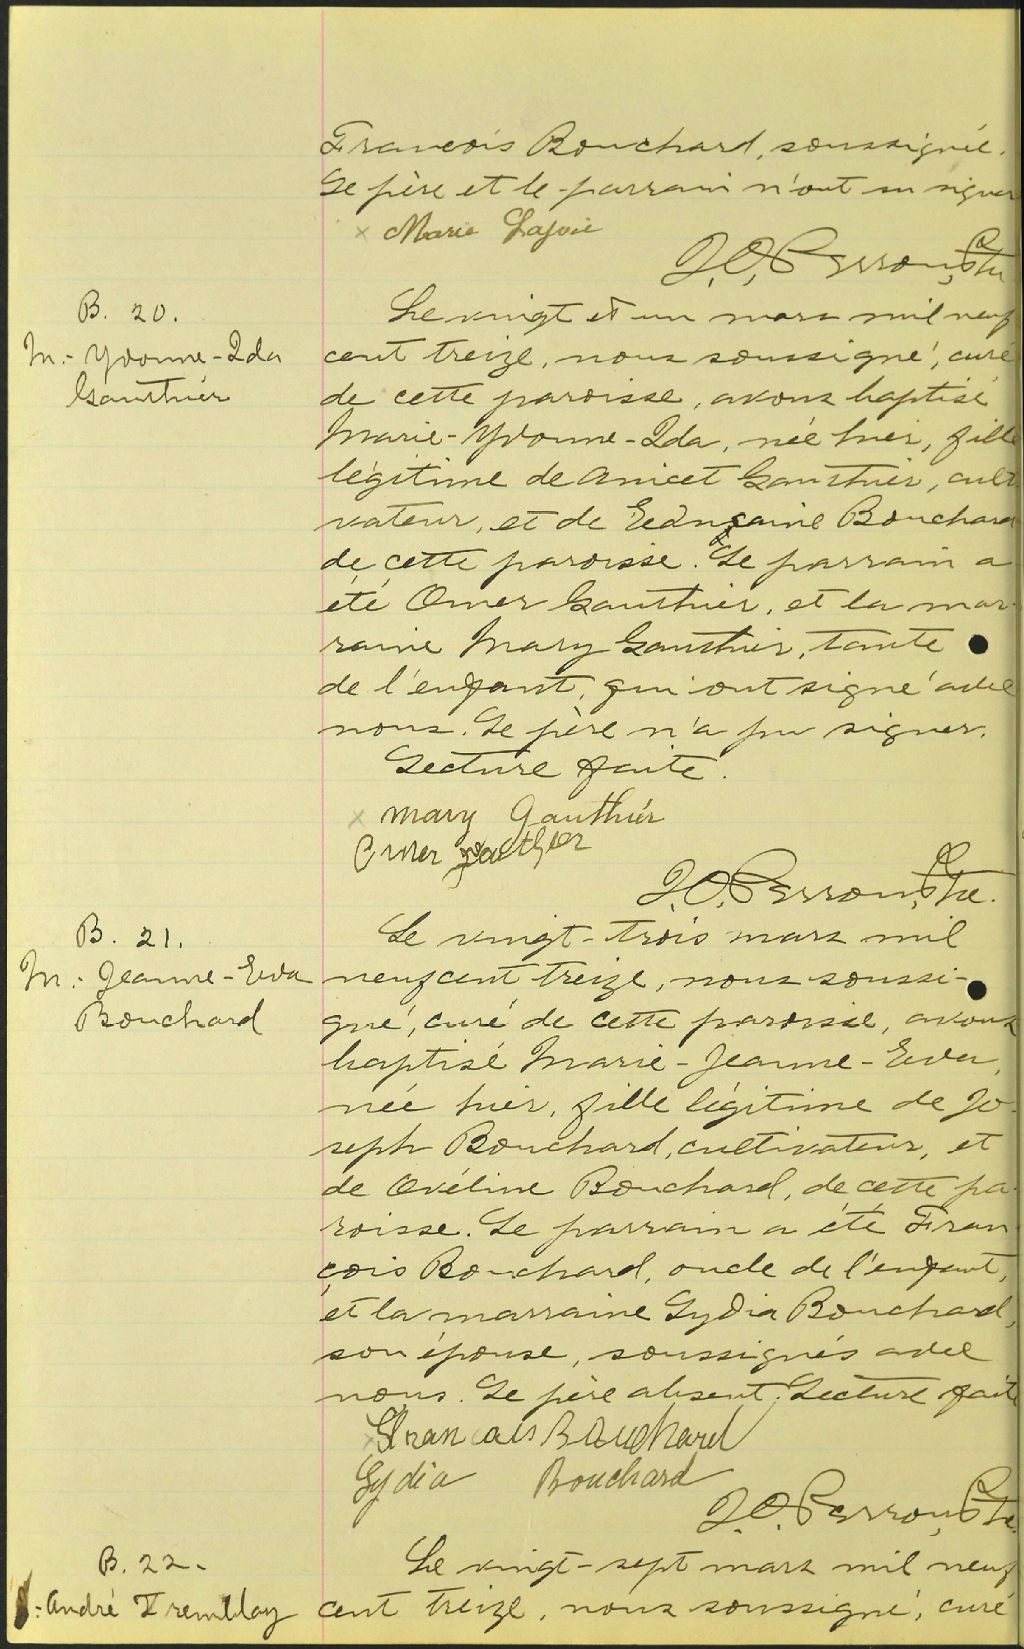 François Bouchard, soussignée.
Le père et le parrain n'ont su signer
x Marie Lajoie
J.O. Perron, Ptre
B. 20.
M.- Yvonne-Ida
Gauthier
Le vingt et un mars mil neuf
cent treize, nous soussigné, curé
de cette paroisse, avons baptisé
Marie-Yvonne-Ida, née hier, fille
légitime de Anicet Gauthier, culti
vateur, et de Bouchard
de cette paroisse. Le parrain a
été Omer Gauthier, et la mar-
raine Mary Gauthier, tante
de l'enfant, qui ont signé avec
nous. Le père n'a pu signer.
Lecture faite.
x Mary Gauthier
Omer Gauthier
J.O. Perron, Ptre.
B. 21.
M.- Jeanne-Eva
Bouchard
Le vingt-trois mars mil
neuf cent treize, nous soussi-
gné, curé de cette paroisse, avons
baptisé Marie-Jeanne-Eva,
née hier, fille légitime de Jo-
seph Bouchard, cultivateur, et
de Ovéline Bouchard, de cette pa-
roisse. Le parrain a été Fran
çois Bouchard, oncle de l'enfant,
et la marraine Lydia Bouchard,
son épouse, soussignés avec
nous. Le père absent. Lecture faite
x Francais Bouchard
Lydia Bouchard
J.O. Perron, Ptre.
B. 22.
J.-André Tremblay
Le vingt-sept mars mil neuf
cent treize, nous soussigné, curé